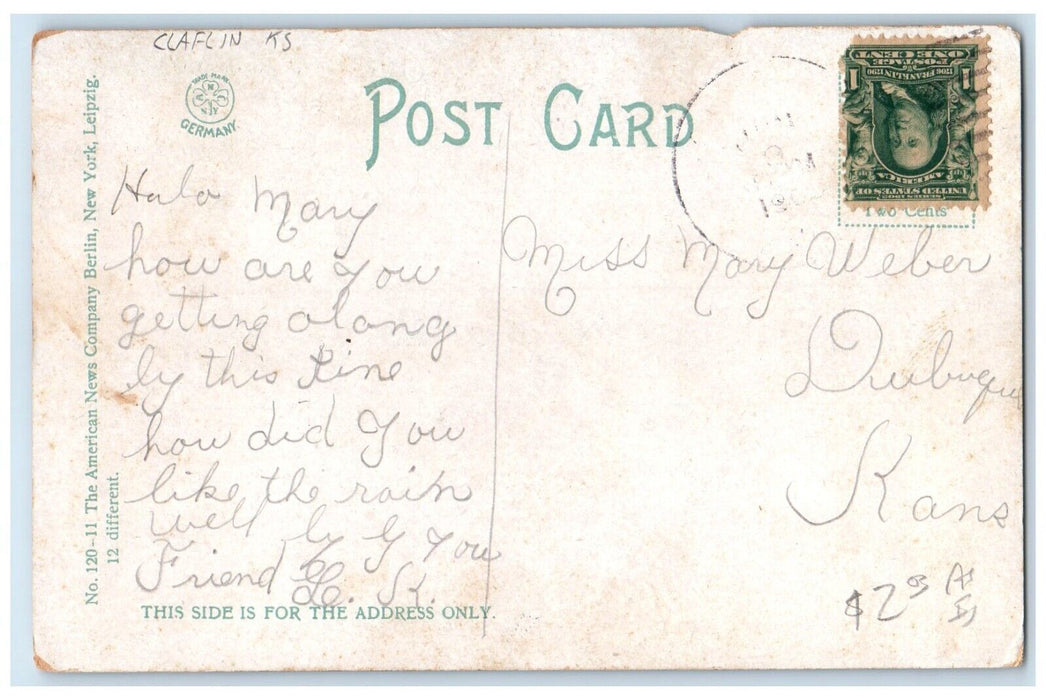 CLAFLIN KS
TRADE MARK
GERMANY.
POST CARD
ONE CENT
POSTAGE
1706 FRANKLIN 1790
1 1
SERIES 1902
UNITED STATES OF
AMERICA
Two Cents
No. 120-11 The American News Company Berlin, New York, Leipzig.
12 different.
Halo Mary
how are you
getting along
by this time
how did you
like the rain
well by G You
Friend L. K.
Miss Mary Weber
Dubuque
Kans
$2 03
THIS SIDE IS FOR THE ADDRESS ONLY.